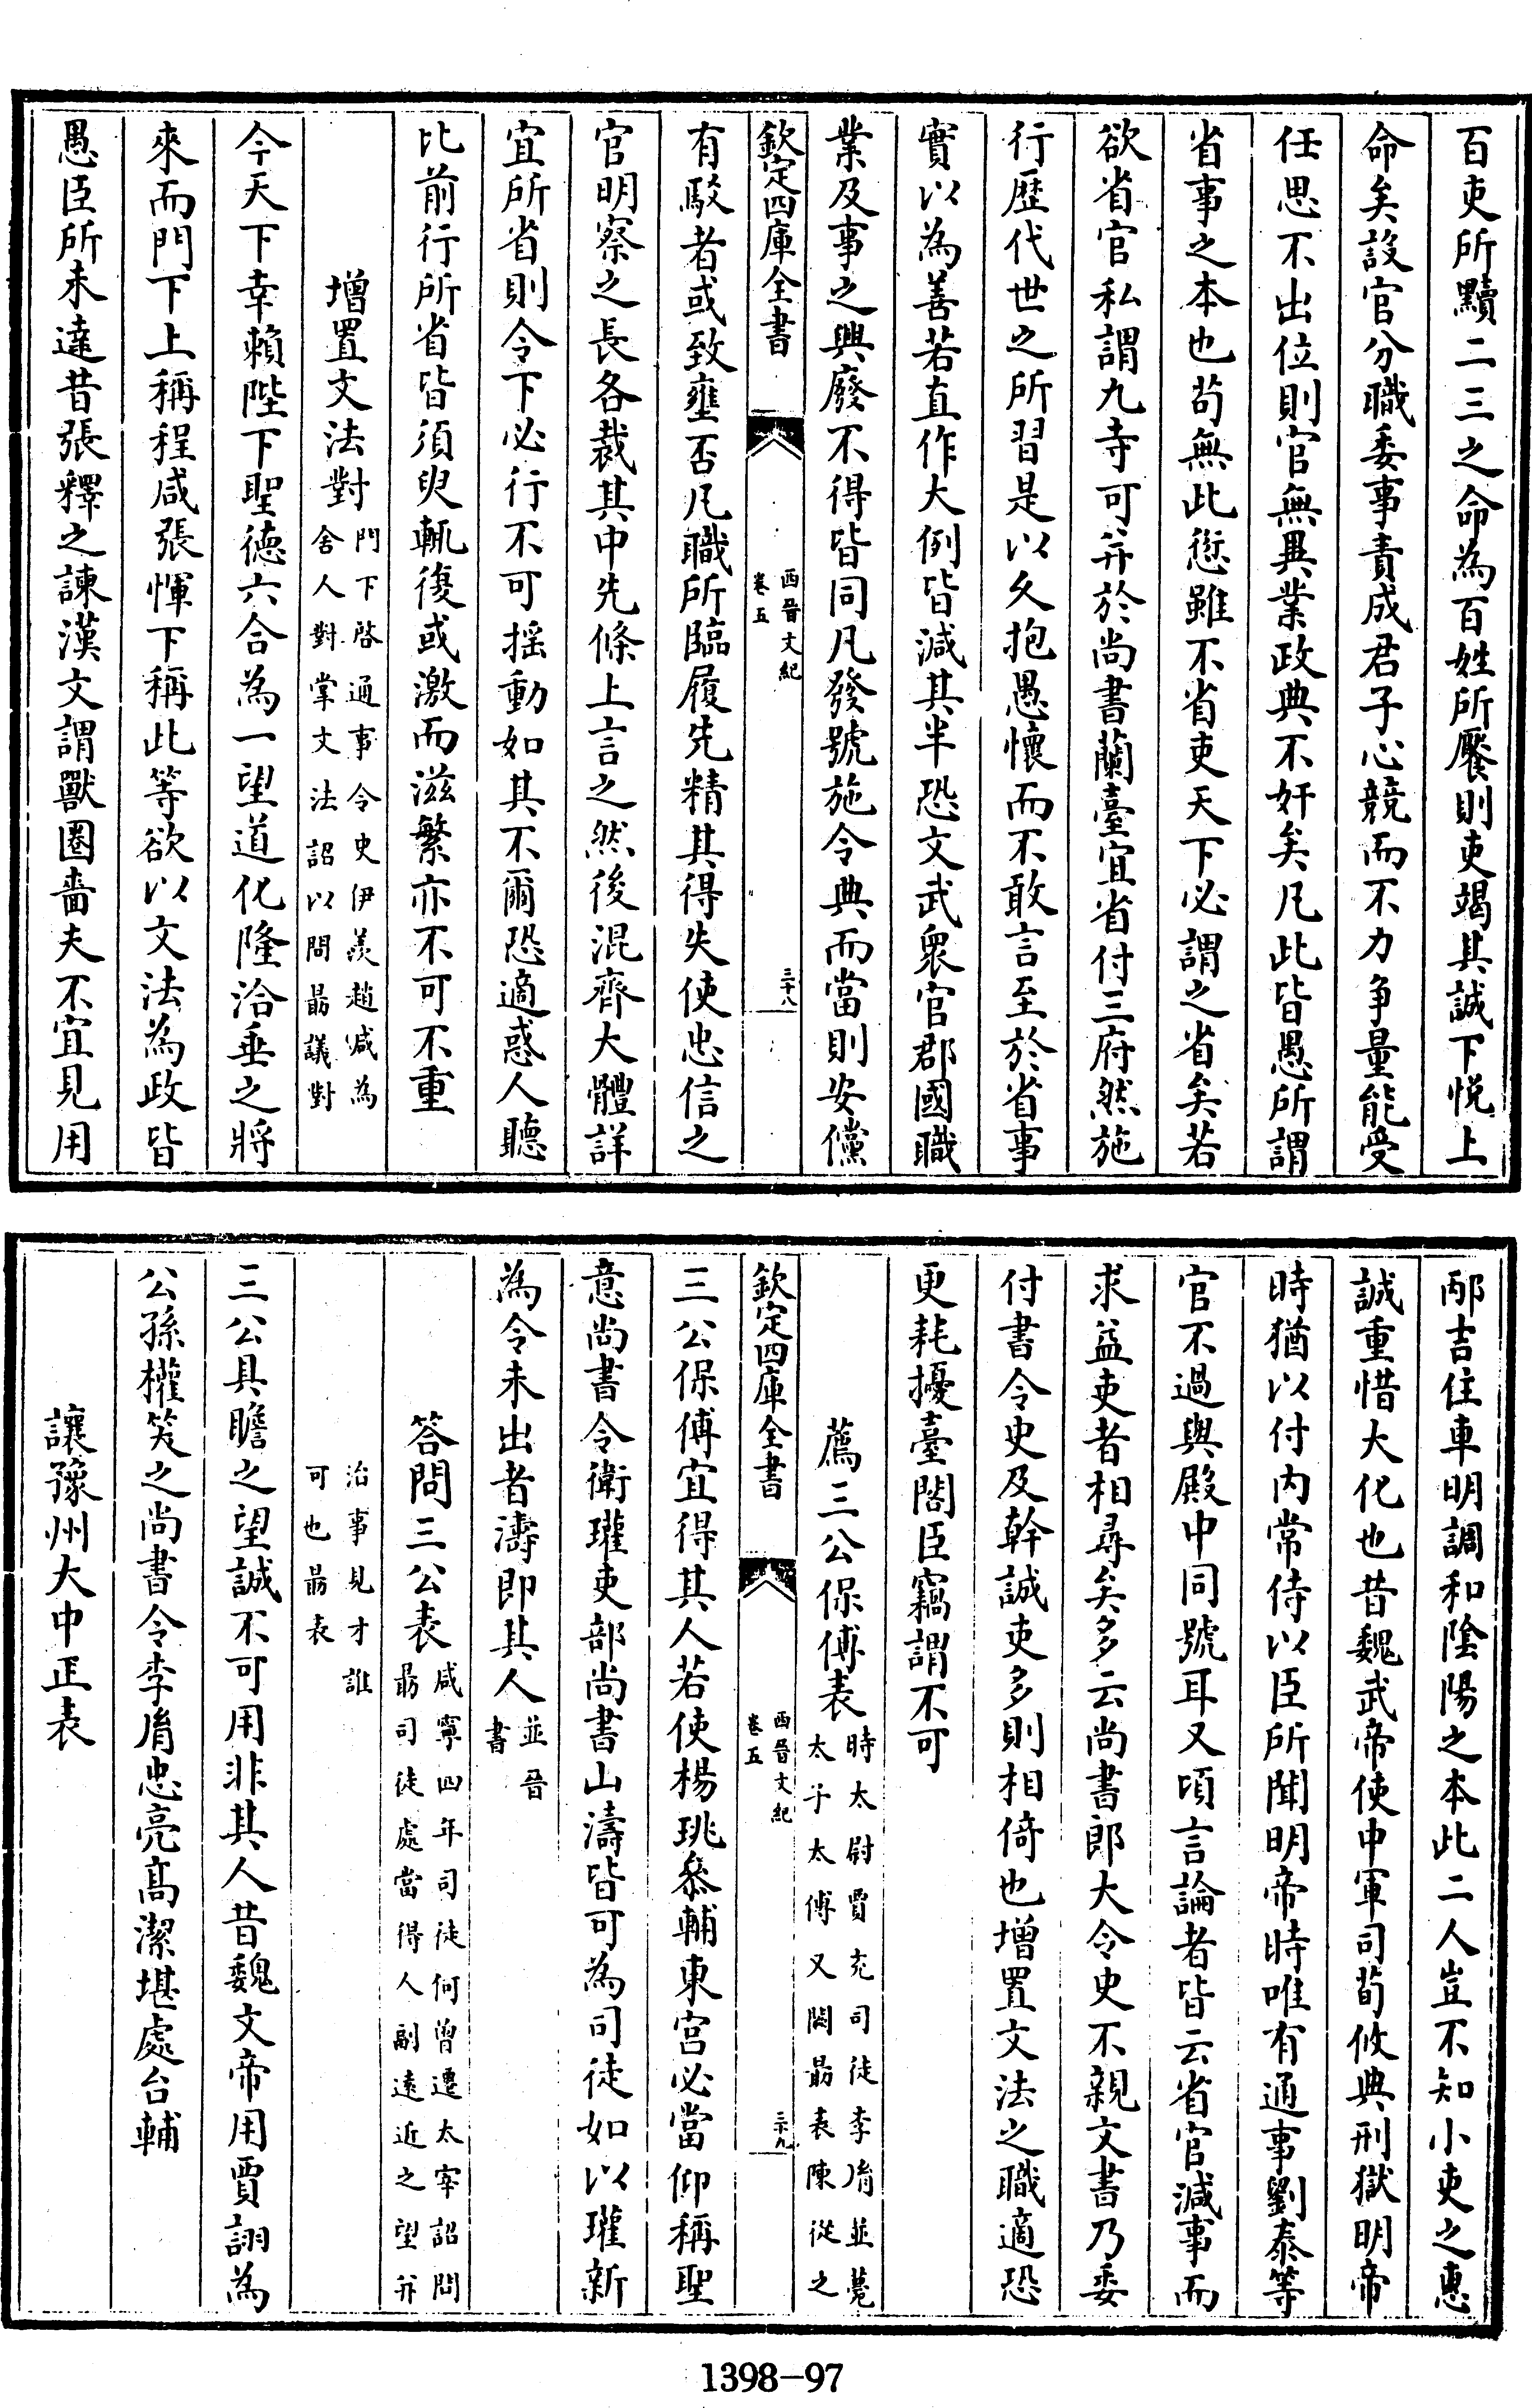 百吏所黷二三之命為百姓所饜則吏竭其誠下悅上
命矣設官分職委事責成君子心競而不力争量能受
任思不出位則官無異業政典不奸矣凡此皆愚所謂
省事之本也苟無此愆雖不省吏天下必謂之省矣若
欲省官私謂九寺可并於尚書蘭臺宜省付三府然施
行歴代世之所習是以久抱愚懷而不敢言至於省事
實以為善若直作大例皆減其半恐文武衆官郡國職
業及事之興廢不得皆同凡發號施令典而當則安儻
欽定四庫全書
西晉文紀
卷五
三十八
有駁者或致壅否凡職所臨履先精其得失使忠信之
官明察之長各裁其中先條上言之然後混齊大體詳
宜所省則令下必行不可揺動如其不爾恐適惑人聽
比前行所省皆須臾輒復或激而滋繁亦不可不重
增置文法對
門下啓通事令史伊羨趙咸為
舍人對掌文法詔以問勗議對
今天下幸賴陛下聖德六合為一望道化隆洽垂之將
來而門下上稱程咸張惲下稱此等欲以文法為政皆
愚臣所未達昔張釋之諫漢文謂獸圈嗇夫不宜見用
邴吉住車明調和陰陽之本此二人豈不知小吏之惠
誠重惜大化也昔魏武帝使中軍司荀攸典刑獄明帝
時猶以付内常侍以臣所聞明帝時唯有通事劉泰等
官不過與殿中同號耳又頃言論者皆云省官減事而
求益吏者相尋矣多云尚書郎大令史不親文書乃委
付書令史及幹誠吏多則相倚也增置文法之職適恐
更耗擾臺閣臣竊謂不可
薦三公保傅表
時太尉賈充司徒李胤並薨
太子太傅又闕勗表陳從之
欽定四庫全書
西晉文紀
卷五
三十九
三公保傅宜得其人若使楊珧叅輔東宮必當仰稱聖
意尚書令衛瓘吏部尚書山濤皆可為司徒如以瓘新
為令未出者濤即其人
並晉
書
答問三公表
咸寧四年司徒何曾遷太宰詔問
勗司徒處當得人副遠近之望并
治事見才誰
可也勗表
三公具瞻之望誠不可用非其人昔魏文帝用賈詡為
公孫權笑之尚書令李胤忠亮高潔堪處台輔
讓豫州大中正表
1398-97